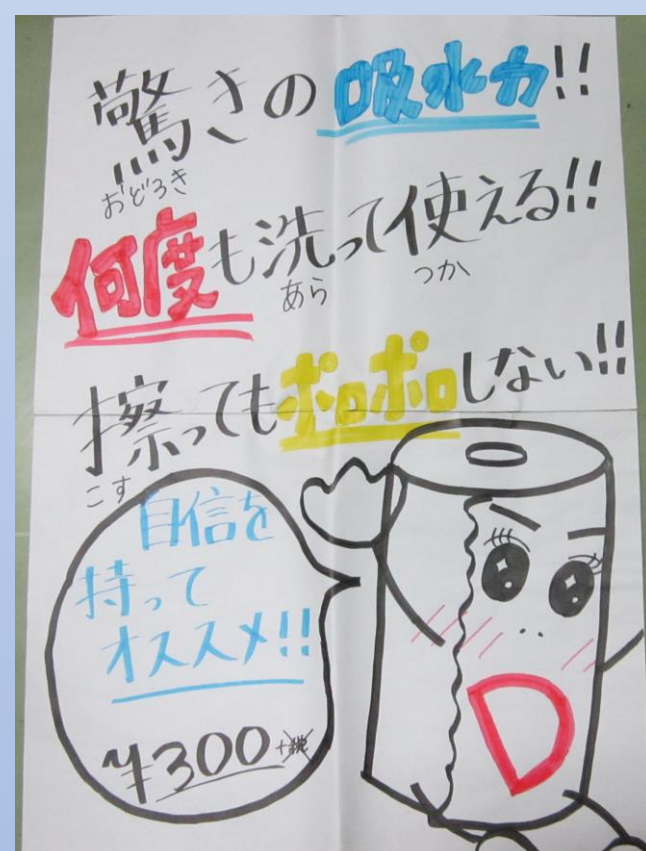 驚きの吸水力!!
おどろき
何度も洗って使える!!
あら つか
擦ってもボロボロしない!!
こす
自信を
持って
オススメ!!
¥300+税